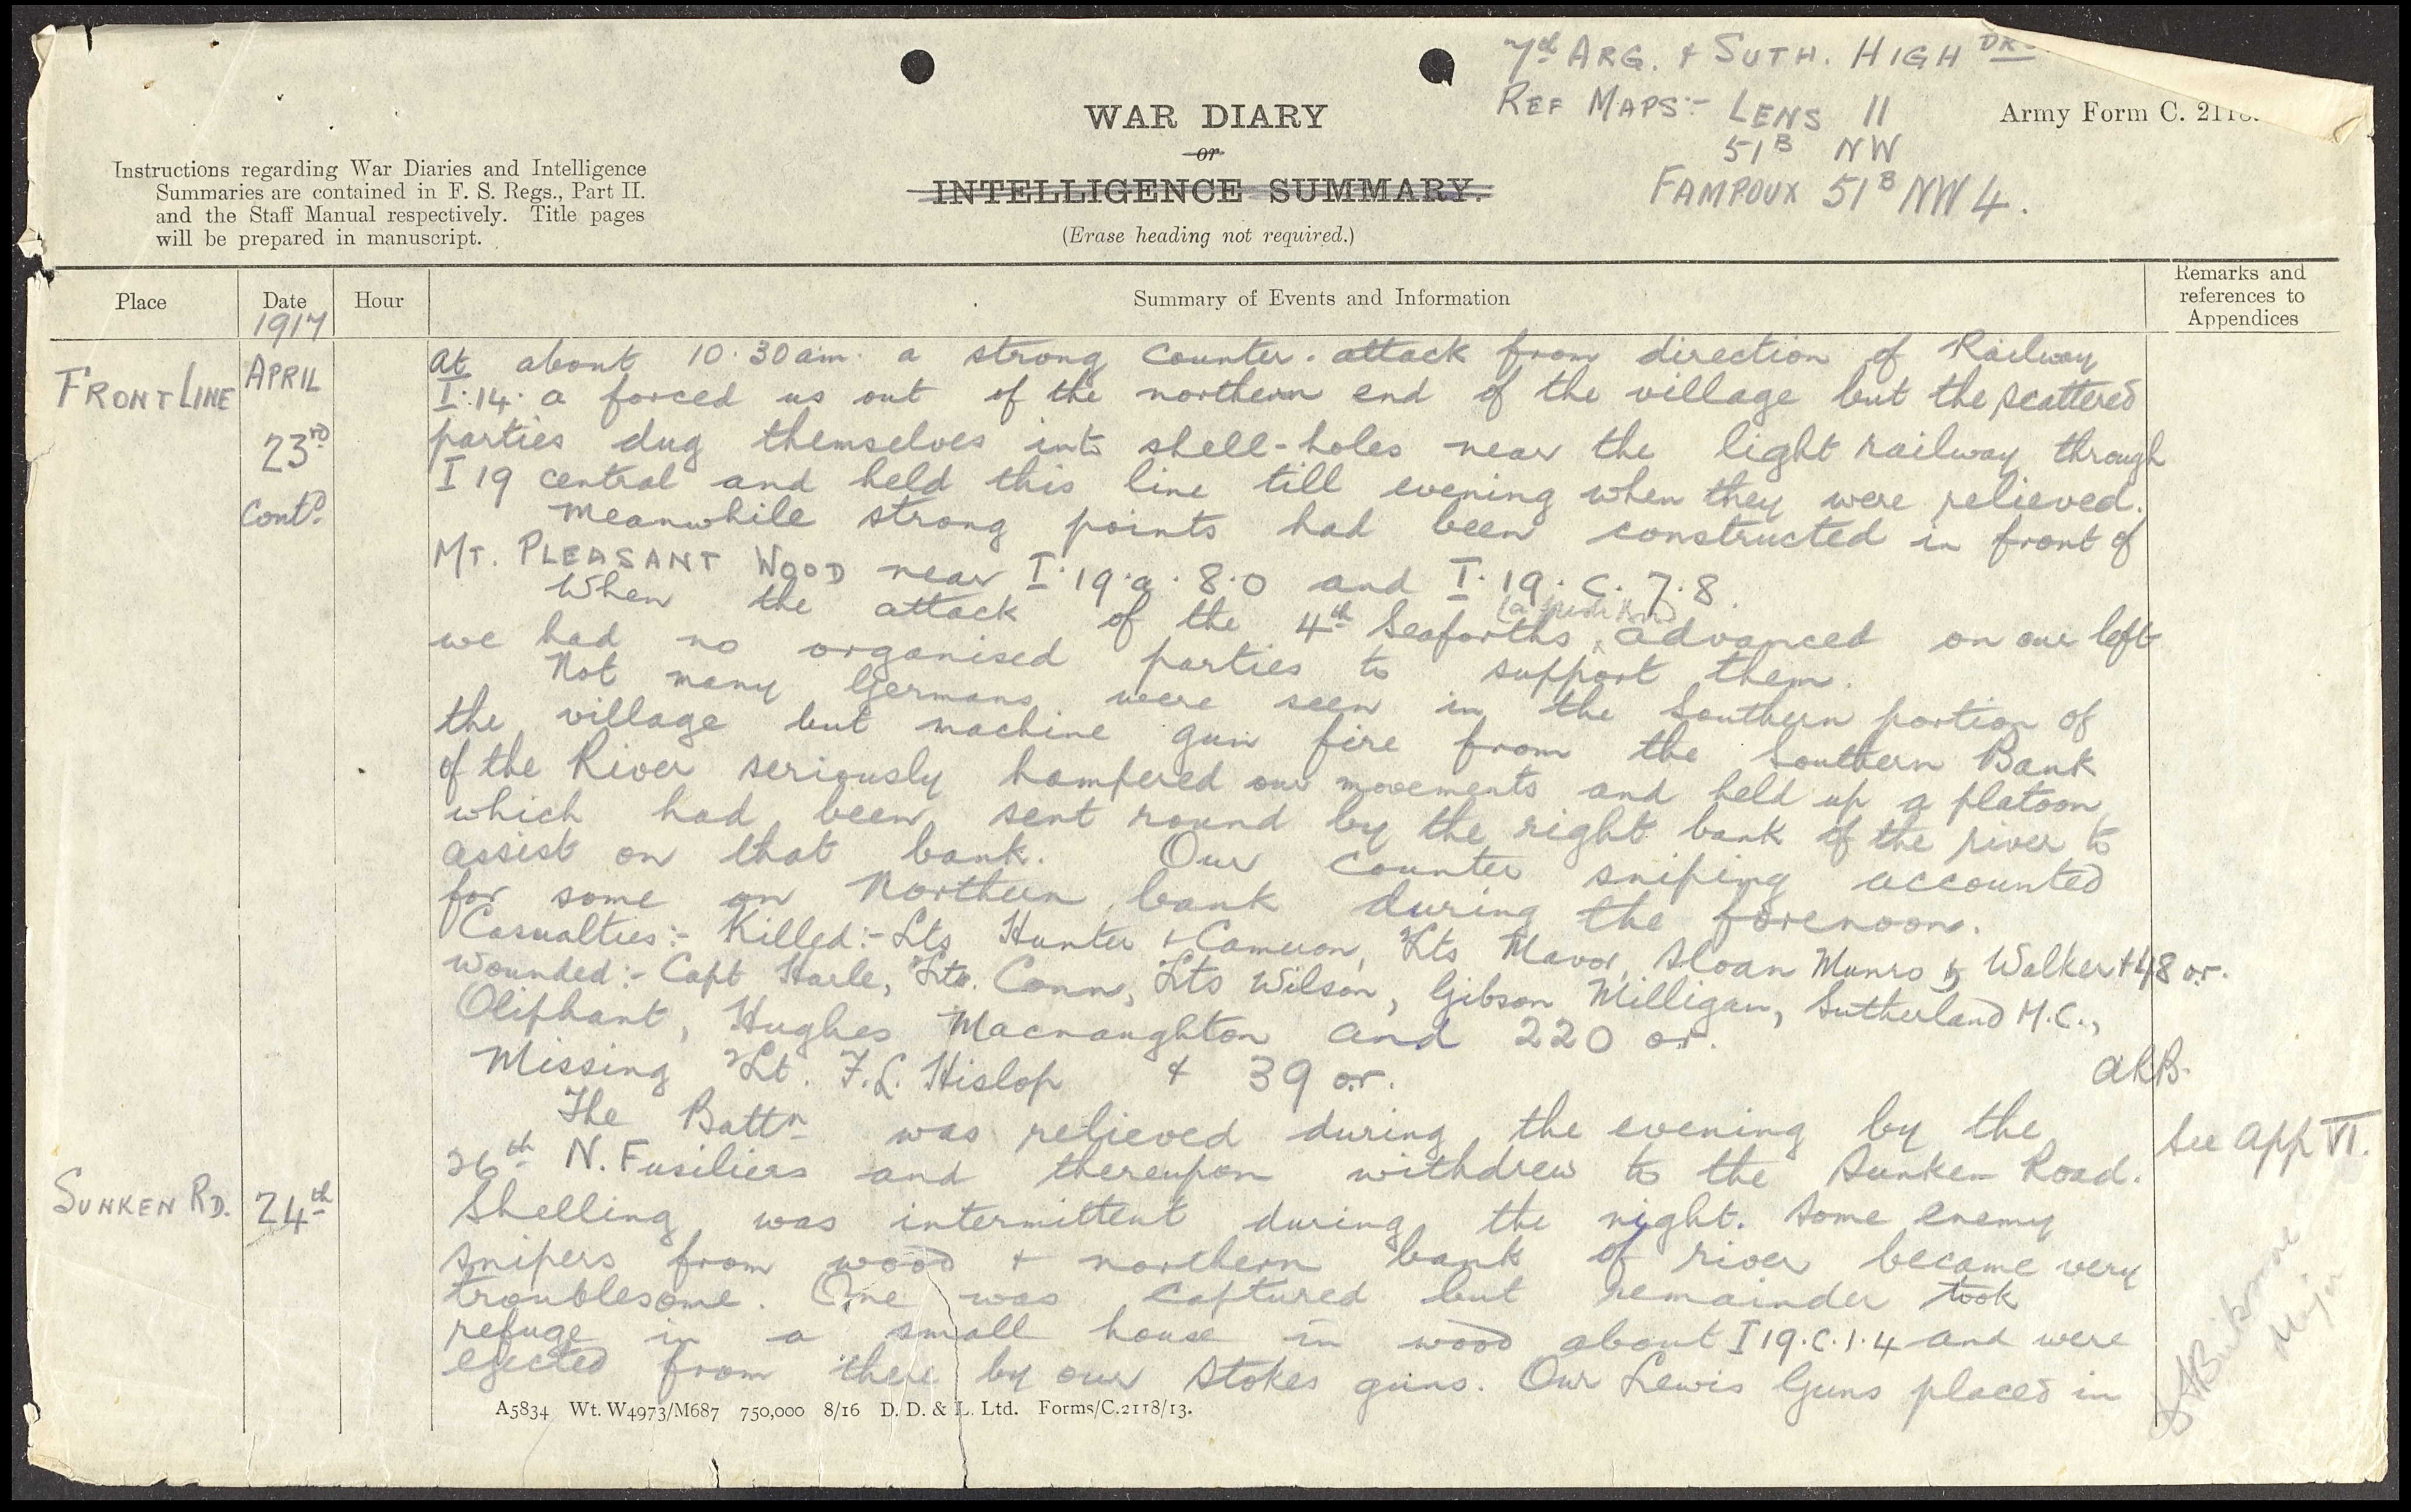 7th ARG. & SUTH. HIGHDRS
REF MAPS:- LENS 11
51B NW
FAMPOUX 51B NW 4.
Army Form C. 2118.
WAR DIARY
or
INTELLIGENCE SUMMARY.
(Erase heading not required.)
Instructions regarding War Diaries and Intelligence
Summaries are contained in F. S. Regs., Part II.
and the Staff Manual respectively. Title pages
will be prepared in manuscript.
Place
Date
1917
Hour
Summary of Events and Information
Remarks and
references to
Appendices
FRONT LINE
APRIL
23rd
Contd.
At about 10.30 am. a strong counter-attack from direction of Railway
I.14.a forced us out of the northern end of the village but the scattered
parties dug themselves into shell-holes near the light railway through
I 19 central and held this line till evening when they were relieved.
Meanwhile strong points had been constructed in front of
MT. PLEASANT WOOD near I.19.a.8.0 and I.19.C.7.8.
When the attack of the 4th Seaforths advanced on our left
we had no organised parties to support them.
Not many Germans were seen in the Southern portion of
the village but machine gun fire from the Southern Bank
of the River seriously hampered our movements and held up a platoon
which had been sent round by the right bank of the river to
assist on that bank. Our counter sniping accounted
for some on Northern bank during the forenoon.
Casualties:- Killed:- Lts Hunter & Cameron, 2Lts Mavor, Sloan Munro & Walker + 48 or.
Wounded:- Capt Harle, Lts. Conn, 2Lts Wilson, Gibson Milligan, Sutherland M.C.,
Oliphant, Hughes Macnaughton and 220 or.
Missing 2Lt. F.L. Hislop & 39 o.r.
ARB.
The Battn was relieved during the evening by the
26th N. Fusiliers and thereupon withdrew to the Sunken Road.
See App VI.
SUNKEN RD.
24th
Shelling was intermittent during the night. Some enemy
snipers from wood + northern bank of river became very
troublesome. One was captured but remainder took
refuge in a small house in wood about I 19.C.1.4 and were
ejected from there by our Stokes guns. Our Lewis Guns placed in
Major
A5834 Wt. W4973/M687 750,000 8/16 D. D. & L. Ltd. Forms/C.2118/13.